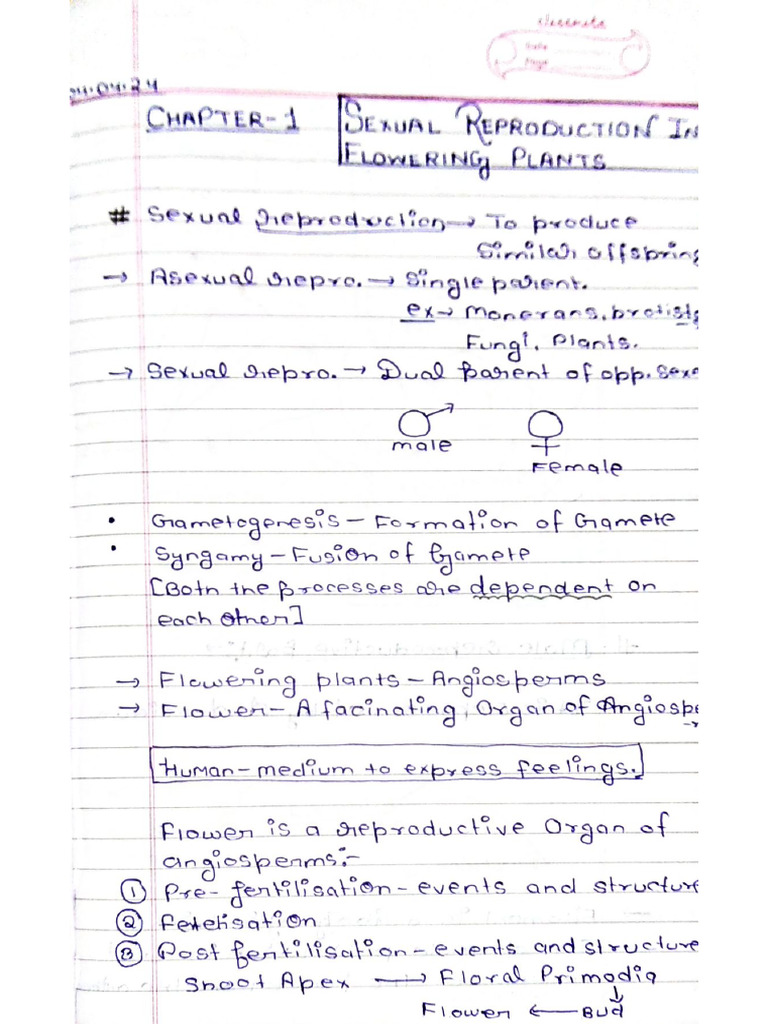 classmate
Date
Page
04.04.24
CHAPTER-1 SEXUAL REPRODUCTION IN
FLOWERING PLANTS
# Sexual reproduction → To produce
similar offspring
→ Asexual repro. → Single parent.
ex → Monerans, protists
Fungi, Plants.
→ Sexual repro. → Dual parent of opp. sexe
male
Female
• Gametogenesis – Formation of Gamete
• Syngamy – Fusion of Gamete
[Both the processes are dependent on
each other]
→ Flowering plants – Angiosperms
→ Flower – A facinating Organ of Angiospe
Human – medium to express feelings.
Flower is a reproductive Organ of
angiosperms:-
① Pre-fertilisation – events and structure
② Fetelisation
③ Post fertilisation – events and structure
Shoot Apex → Floral Primodia
↓
Flower ← Bud